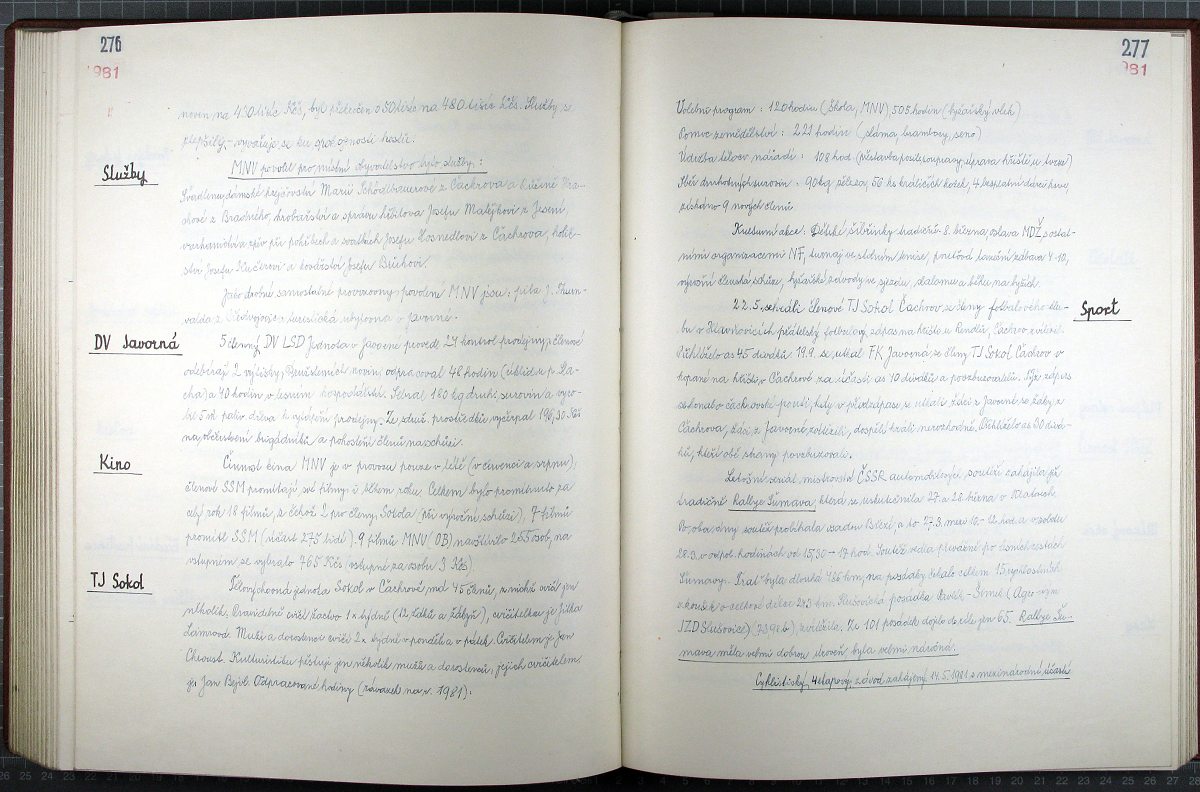 276
1981
noven na 430 tisíc Kčs, byl překročen o 50 tisíc na 480 tisíc Kčs. Služby se
zlepšily, - vyvařuje se ku spokojenosti hostí.
Služby
MNV povolil pro místní obyvatelstvo tyto služby:
Švadlenu, dámské krejčovství Marii Schödlbauerové z Čachrova a Růženě
chové z Bradného, hrobařství a správu hřbitova Josefu Matějkovi z Jesení,
varhaníka a zpěv při pohřbech a svatbách Josefu Hosnedlovi z Čachrova, holič-
ství Josefu Kučerovi a kovářství Josefu
Jako drobné samostatné provozovny povolené MNV jsou: pila J. Thurn-
valda z a turistická ubytovna v Javorné.
DV Javorná
5 členný DV LSD Jednota v Javorné provedl 24 kontrol prodejny, členové
odebírají 2 výtisky Družstevní noviny, odpracoval 48 hodin (úklid v p.
a 40 hodin v lesním hospodářství. Sebral 180 kg druh. surovin a vyro-
bil 5 m paliv. dřeva k vytápění prodejny. Ze sdruž. prostředků vyčerpal 196,30 Kčs
na občerstvení brigádníků a pohoštění členů na schůzi.
Kino
Činnost kina MNV je v provozu pouze v létě (v červenci a srpnu),
členové SSM promítají své filmy i během roku. Celkem bylo promítnuto za
celý rok 18 filmů, z čehož 2 pro členy Sokola (při výroční schůzi), 7 filmů
promítl SSM (účast 275 lidí). 9 filmů MNV (OB) navštívilo 255 osob, na
vstupném se vybralo 765 Kčs (vstupné za osobu 3 Kčs)
TJ Sokol
Tělovýchovná jednota Sokol v Čachrově má 45 členů, z nichž cvičí jen
několik. Pravidelně cvičí žactvo 1x týdně (12 žáků a žákyň), cvičitelkou je Jitka
Lamrová. Muži a dorostenci cvičí 2x týdně v pondělí a v pátek. Cvičitelem je Jan
Chroust. Kulturistiku pěstují jen několik mužů a dorostenců, jejich cvičitelem
je Jan Bejvl. Odpracované hodiny (závazek na r. 1981):
277
1981
Volební program: 120 hodin (škola, MNV) 505 hodin (lyžařský vlek)
Pomoc zemědělství: 221 hodin (sláma, brambory, seno)
Údržba tělových. nářadí: 108 hod. (přestavba posil. soupravy, úprava hřiště u tvrze)
Sběr druhotných surovin: 90 kg železa, 56 ks králičích kožek, 4 bezplatní dárci krve,
získáno 9 nových členů
Kulturní akce: Dětské šibřinky tradičně 8. března, oslava MDŽ s ostat-
ními organizacemi NF, turnaj ve stolním tenise, pouťová taneční zábava 4.10,
výroční členská schůze, lyžařské závody ve sjezdu, slalomu a běhu na lyžích.
Sport
22.5. sehráli členové TJ Sokol Čachrov s členy fotbalového klu-
bu v Hlavňovicích přátelský fotbalový zápas na hřišti u Rendlů, Čachrov zvítězil.
Přihlíželo as 45 diváků. 19.9. se utkal FK Javorná se členy TJ Sokol Čachrov v
kopané na hřišti v Čachrově za účasti as 10 diváků a povzbuzovatelů. Týž zápas
se konal o čachrovské pouti, kdy v předzápase se utkali žáci z Javorné se žáky z
Čachrova, žáci z Javorné zvítězili, dospělí hráli nerozhodně. Přihlíželo as 30 divá-
ků, kteří obě strany povzbuzovali.
Letošní seriál mistrovství ČSSR automobilových soutěží zahájila již
tradičně Rallye Šumava, která se uskutečnila 27. a 28. března v Klatovech
Po oba dny soutěž probíhala osadou Březí, a to 27.3. mezi 10.-12. hod. a v sobotu
28.3. v odpol. hodinách od 15,30 - 17 hod. Soutěž vedla převážně po lesních cestách
Šumavy. Trať byla dlouhá 486 km, na posádky čekalo celkem 15 rychlostních
zkoušek o celkové délce 243 km. Slušovická posádka Pavlík - Šimek (Agro-tým
JZD Slušovice) zvítězila. Ze 101 posádek dojelo do cíle jen 65. Rallye Šu-
mava měla velmi dobrou úroveň, byla velmi náročná.
Cyklistický 4 etapový závod zahájený 14.5.1981 s mezinárodní účastí